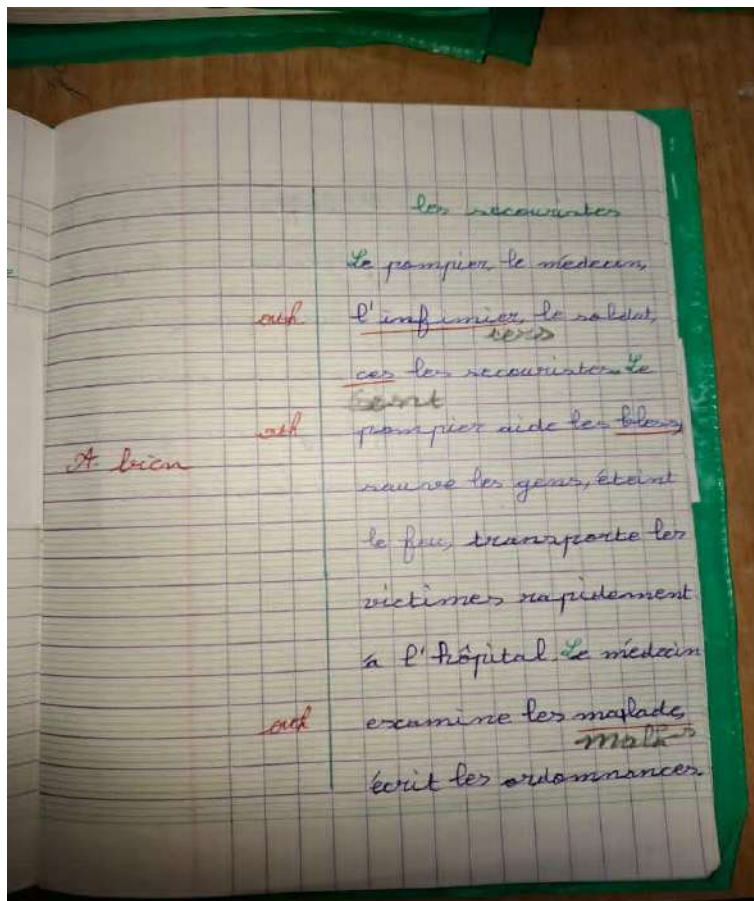 les secouristes
Le pompier, le médecin,
orth l'infimier, le soldat,
iers
ces les secouristes. Le
sont
orth pompier aide les bless
A. bien
sauve les gens, éteint
le feu, transporte les
victimes rapidement
à l'hôpital. Le médecin
orth examine les maflads,
écrit les ordonnances